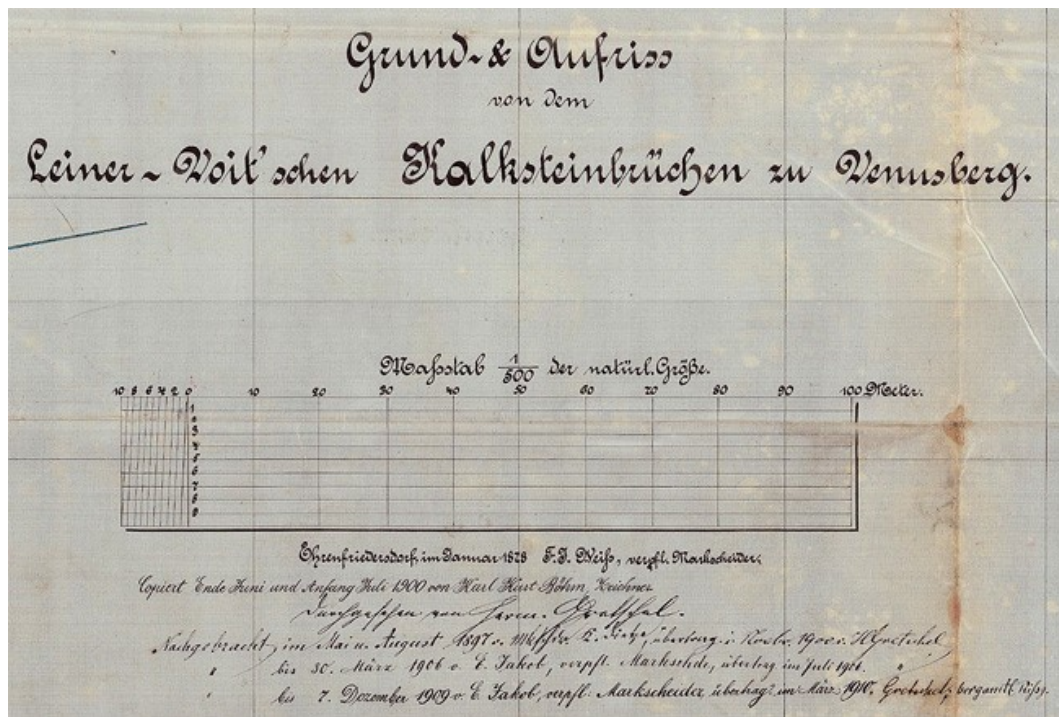 Grund- & Aufriss
von dem
Leiner-Voit'schen Kalksteinbrüchen zu Venusberg.
Maßstab 1/500 der natürl. Größe.
10 8 6 4 2 0 10 20 30 40 50 60 70 80 90 100 Meter.
1
2
3
4
5
6
7
8
9
Ehrenfriedersdorf, im Januar 1878 F. J. Weiß, verpfl. Markscheider.
Copiert Ende Juni und Anfang Juli 1900 von Karl Kurt Böhm, Zeichner
Durchgesehen von Herm. Gretschel.
Nachgebracht im Mai u. August 1897 v. übertrag. i. Novbr. 1900 v. H. Gretschel
" bis 30. März 1906 v. E. Jakob, verpfl. Markschdr, übertrag. im Juli 1906. "
" bis 7. Dezember 1909 v. E. Jakob, verpfl. Markscheider, übertrag. im März 1910. Gretschel, bergamtl.